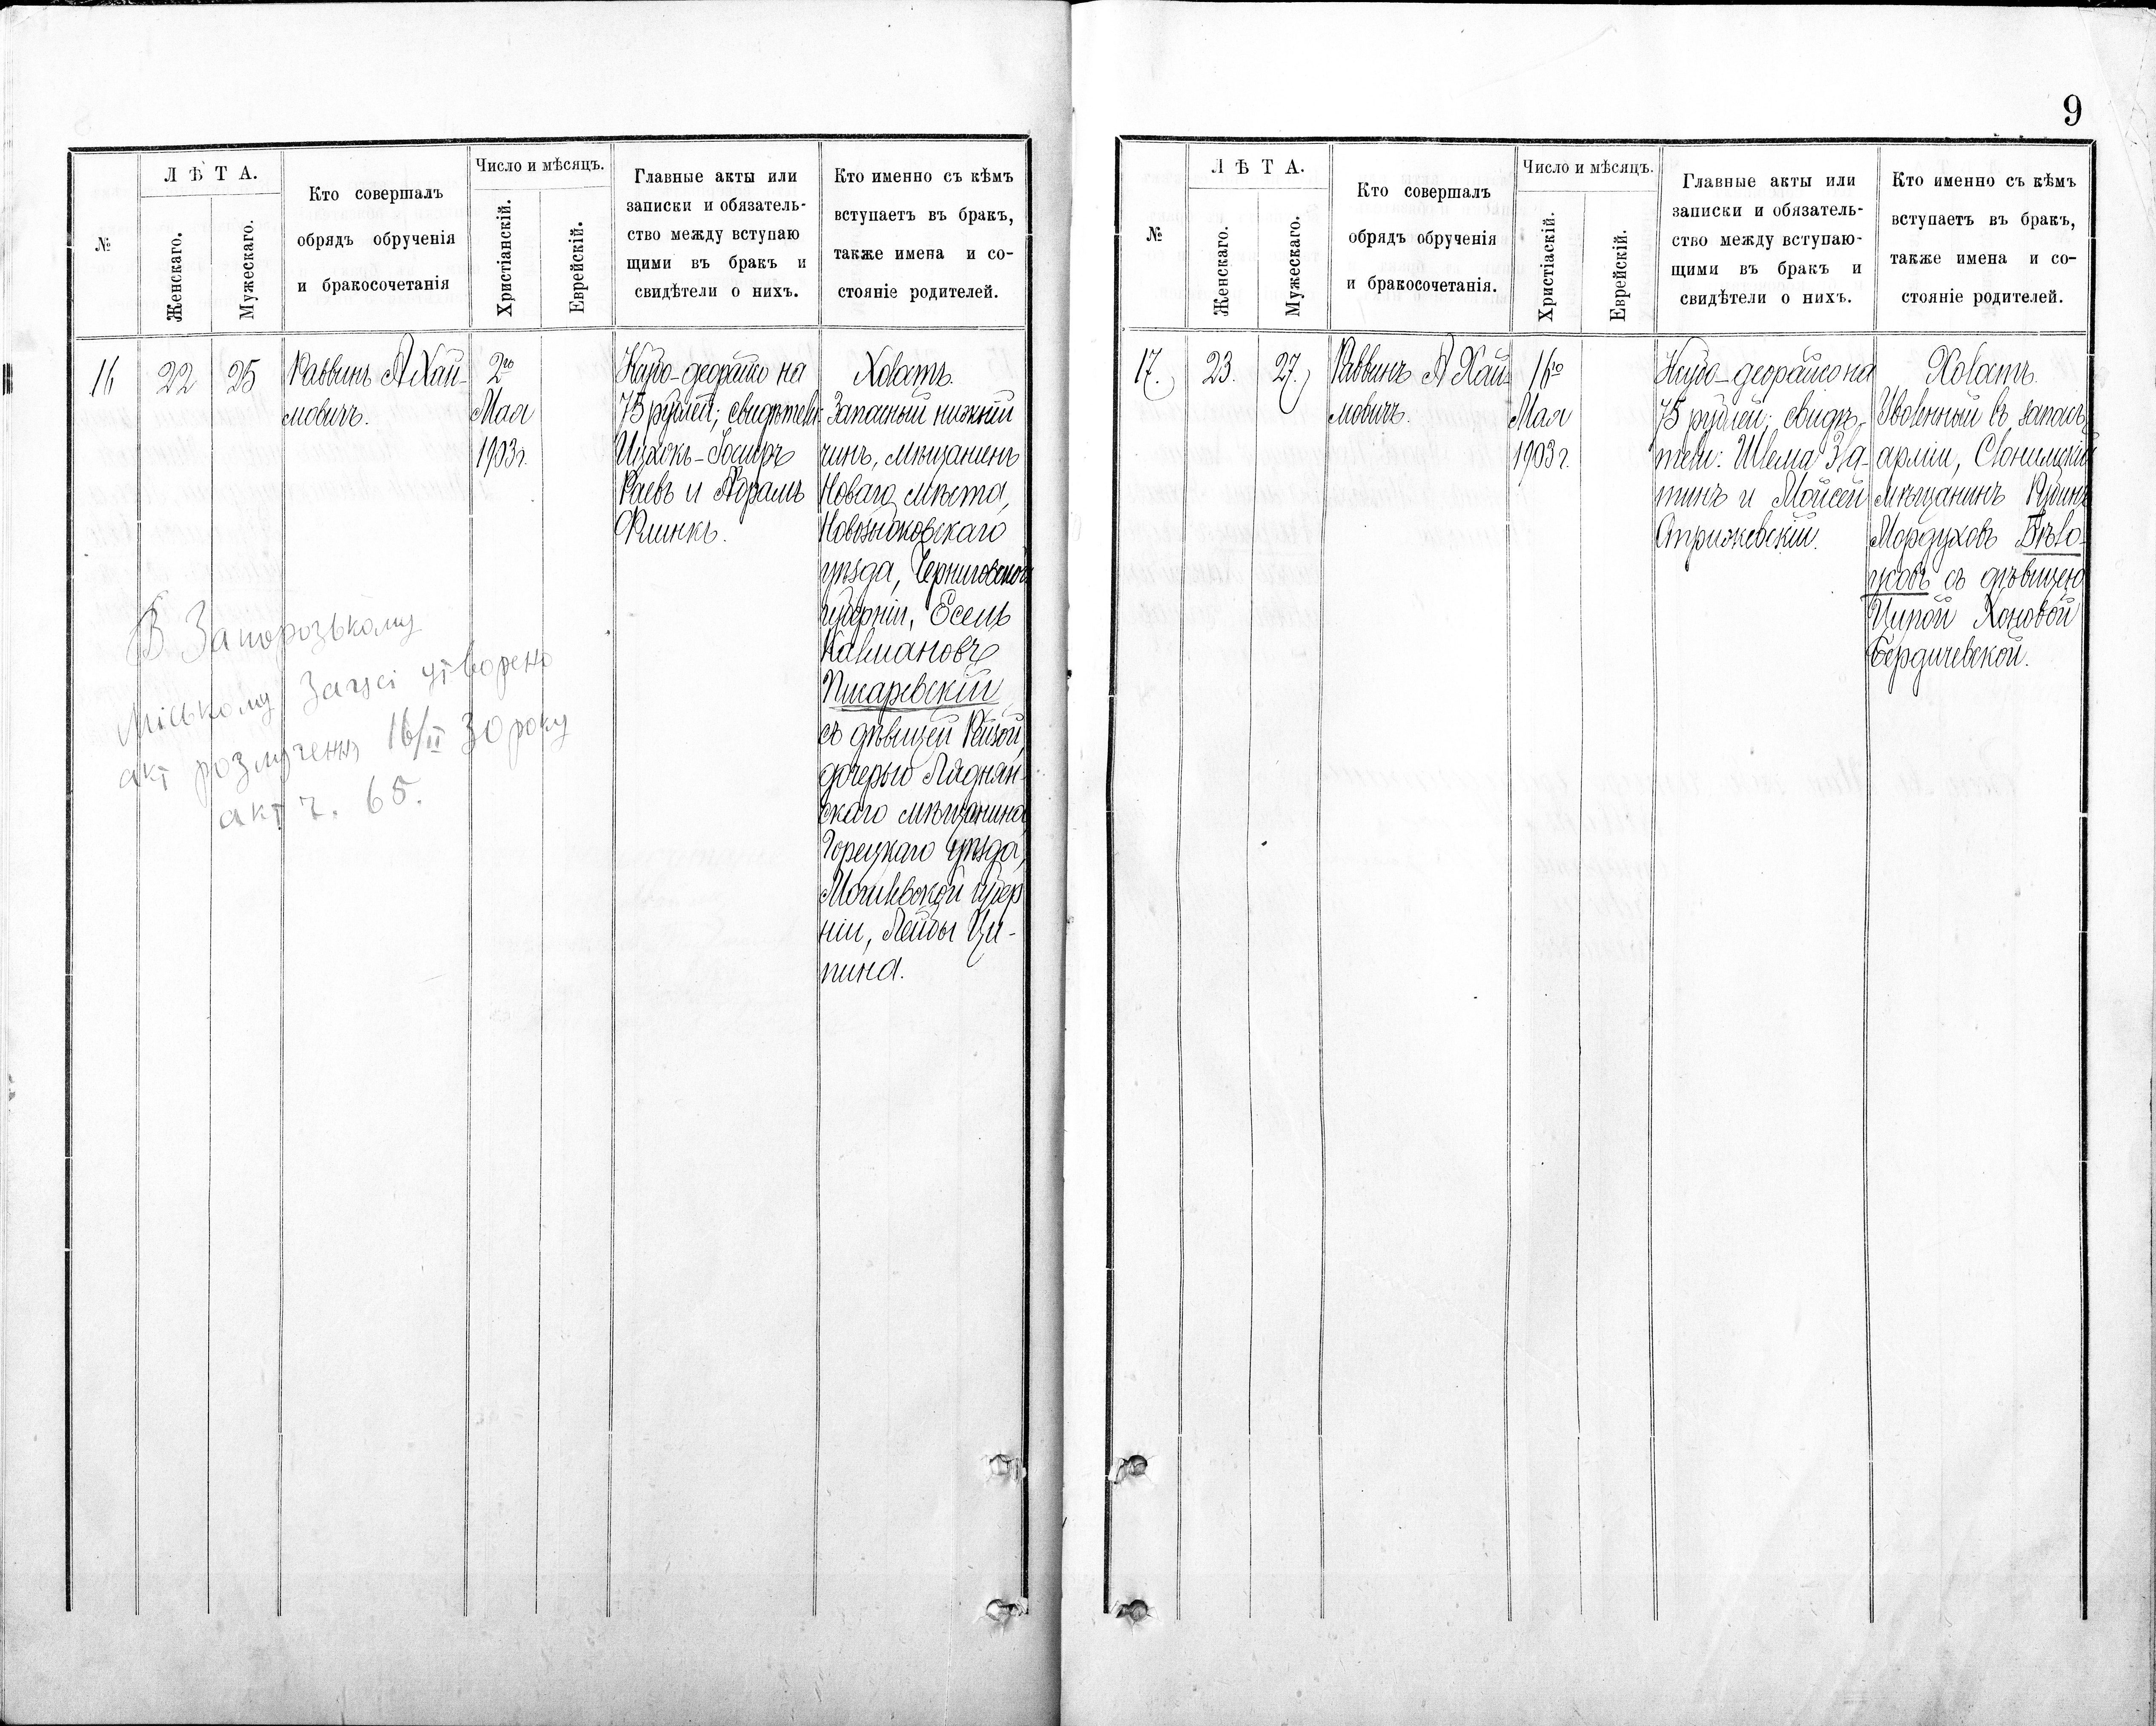 9
№
Л Ѣ Т А.
Женскаго.
Мужескаго.
Кто совершалъ
обрядъ обрученія
и бракосочетанія
Число и мѣсяцъ.
Христіанскій.
Еврейскій.
Главные акты или
записки и обязатель-
ство между вступаю
щими въ бракъ и
свидѣтели о нихъ.
Кто именно съ кѣмъ
вступаетъ въ бракъ,
также имена и со-
стояніе родителей.
16
22
25
Раввинъ А Хай-
мовичъ.
2го
Мая
1903г.
на
75 рублей; свидѣтели
Ицхокъ-
Раевъ и Абрамъ
Флинкъ.
Холостъ.
Запасный нижній
чинъ, мѣщанинъ
Новаго мѣста,
Новозыбковскаго
уѣзда, Черниговской
губерніи, Есель
Калмановъ
Писаревскій
съ дѣвицей Рейзой,
дочерью Ляднян-
скаго мѣщанина
Горецкаго уѣзда,
Могилевской губер
ніи, Лейбы Ци-
пина.
В Запорозькому
міському Загсі утворено
акт розлучення 16/II 30 року
акт ч. 65.
№
Л Ѣ Т А.
Женскаго.
Мужескаго.
Кто совершалъ
обрядъ обрученія
и бракосочетанія.
Число и мѣсяцъ.
Христіаскій.
Еврейскій.
Главные акты или
записки и обязатель-
ство между вступаю-
щими въ бракъ и
свидѣтели о нихъ.
Кто именно съ кѣмъ
вступаетъ въ бракъ,
также имена и со-
стояніе родителей.
17.
23.
27.
Раввинъ А Хай-
мовичъ.
16го
Мая
1903 г.
на
75 рублей; свидѣ-
тели: Шлема Зла-
тинъ и Мойсей
Стрижевскій.
Холостъ.
Уволенный въ запасъ
арміи, Слонимскій
мѣщанинъ Рувинъ
Мордуховъ Бѣло-
усовъ съ дѣвицею
Ципой Хоновой
Бердичевской.